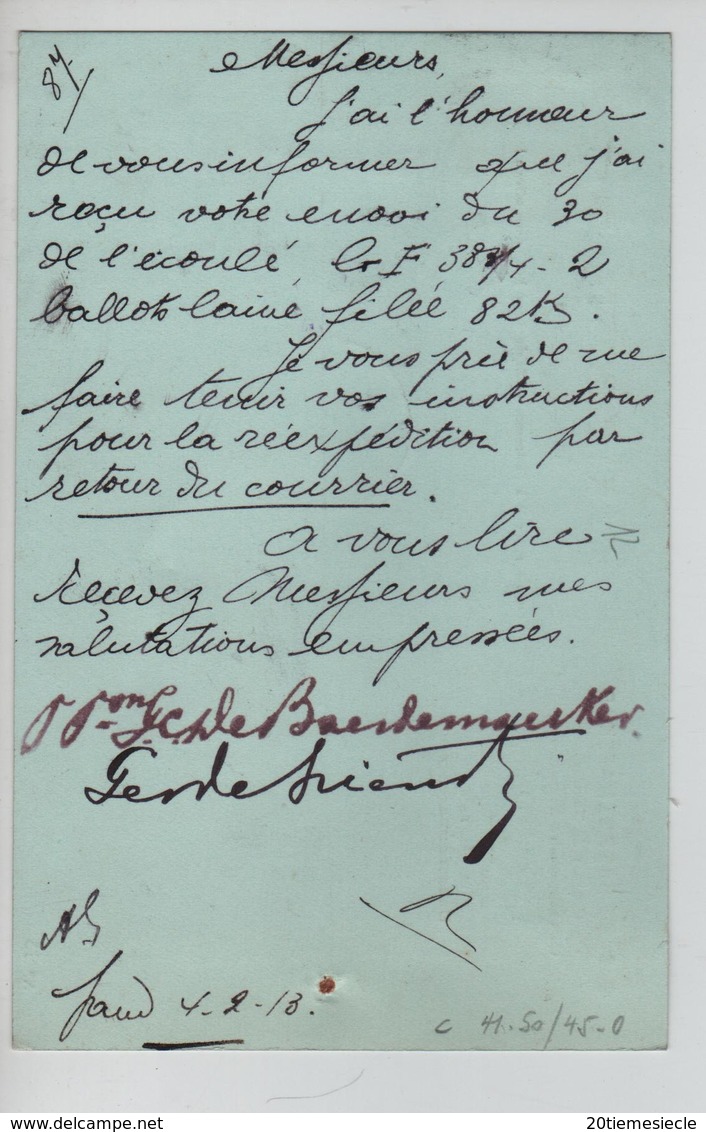 87/
Messieurs,
J'ai l'honneur
de vous informer que j'ai
reçu votre envoi du 30
de l'écoulé, Cr F 383/4 - 2
ballots laine filée 82K.
Je vous prie de me
faire tenir vos instructions
pour la réexpédition par
retour du courrier.
A vous lire
reçevez Messieurs mes
salutations empressées.
P Pon De Baerdemaecker.
Ger de Vriendt
Gand 4-2-13.
c 41-50/45-0
20tiemesiecle